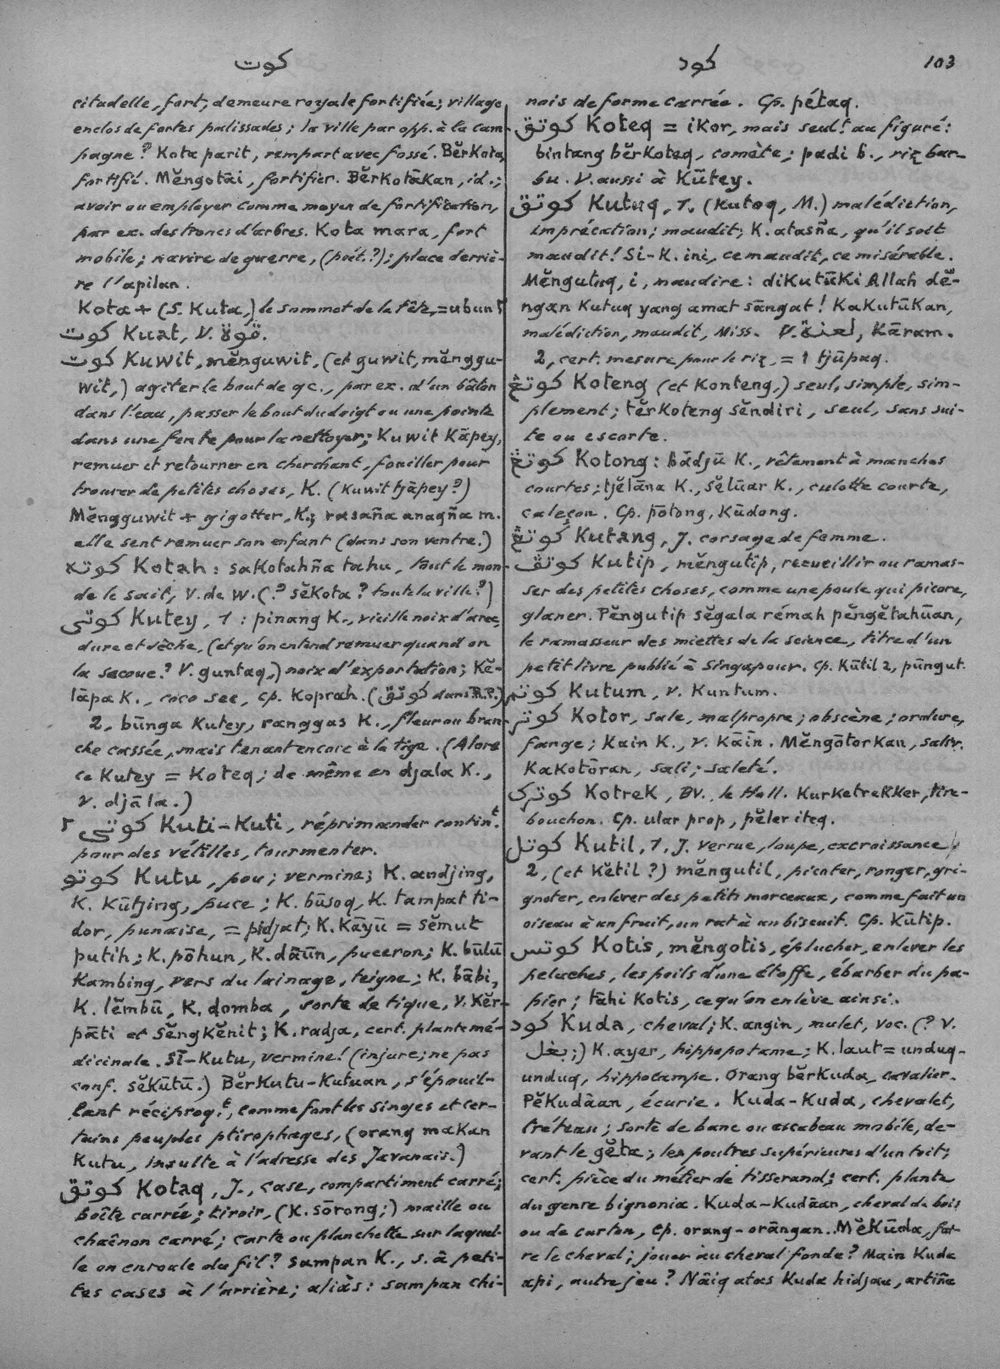 كوت
كود
103
citadelle, fort; demeure royale fortifiée; village
enclos de fortes palissades; la ville par opp. à la cam-
pagne? Kota parit, rempart avec fossé. Bĕrkota,
fortifié. Mĕngotāi, fortifier. Bĕrkotākan, id.;
avoir ou employer comme moyen de fortification,
par ex. des troncs d'arbres. Kota mara, fort
mobile; navire de guerre, (poét.?); place derriè-
re l'apilan.
Kota + (S. Kuta,) le sommet de la tête, = ubun٢
كوت Kuat, V. قوة.
كوت Kuwit, mĕnguwit, (et guwit, mĕnggu-
wit,) agiter le bout de qc., par ex. d'un bâton
dans l'eau, passer le bout du doigt ou une pointe
dans une fente pour la nettoyer; Kuwit Kāpey,
remuer et retourner en cherchant, fouiller pour
trouver de petites choses, K. (Kuwit tjāpey?)
Mĕngguwit + gigotter, K.; rasaña anagña m.
elle sent remuer son enfant (dans son ventre.)
كوته Kotah: sakotahña tahu, tout le mon-
de le sait, V. de W. (? sĕkota? toute la ville?)
كوتي Kutey, 1: pinang K., vieille noix d'arec,
dure et sèche, (et qu'on entend remuer quand on
la secoue? V. guntag,) noix d'exportation; Kĕ-
lāpa K., coco sec, cp. Koprah. (كوتق dans R.P.)
2, būnga Kutey, ranggas K., fleur ou bran-
che cassée, mais tenant encore à la tige. (Alors
ce Kutey = Koteq; de même en djala K.,
V. djāla.)
كوتي٢ Kuti-Kuti, réprimander contin.t
pour des vétilles, tourmenter.
كوتو Kutu, pou; vermine; K. andjing,
K. Kūtjing, puce; K. būsoq, K. tampat ti-
dor, punaise, = pidjat; K. Kāyū = sĕmut
putih; K. pōhun, K. dāūn, puceron; K. būlū
Kambing, vers du lainage, teigne; K. bābi,
K. lĕmbū, K. domba, sorte de tique, V. Kĕr-
pāti et sĕngkĕnit; K. radja, cert. plante mé-
dicinale. Sī-Kutu, vermine! (injure; ne pas
conf. sĕkūtū.) Bĕrkutu-Kutuan, s'épouil-
lant réciproq.t, comme font les singes et cer-
tains peuples ptirophages, (orang makan
Kutu, insulte à l'adresse des Javanais.)
كوتق Kotaq, J., case, compartiment carré;
boîte carrée; tiroir, (K. sōrong;) maille ou
chaînon carré; carte ou planchette sur laquel-
le on enroule du fil? sampan K., s. à peti-
tes cases à l'arrière; aliàs: sampan chi-
nois de forme carrée. Cp. pétaq.
كوتق Koteq = ikor, mais seul.t au figuré:
bintang bĕrkoteq, comète; padi b., riz bar-
bu. V. aussi à Kūtey.
كوتق Kutuq, 1. (Kutoq, M.) malédiction,
imprécation; maudit; K. atasña, qu'il soit
maudit! Si-K. ini, ce maudit, ce misérable.
Mĕngutuq, i, maudire: dikutūki Allah dĕ-
ngan Kutuq yang amat sāngat! Kakutūkan,
malédiction, maudit, Miss. V. لعنة, Kāram.
2, cert. mesure pour le riz, = 1 tjūpaq.
كوتڠ Koteng (et Konteng,) seul, simple, sim-
plement; tĕrkoteng sĕndiri, seul, sans sui-
te ou escorte.
كوتڠ Kotong: bādjū K., vêtement à manches
courtes; tjĕlāna K., sĕlūar K., culotte courte,
caleçon. Cp. pōtong, Kūdong.
كوتڠ Kutang, J. corsage de femme.
كوتڤ Kutip, mĕngutip, recueillir ou ramas-
ser des petites choses, comme une poule qui picore,
glaner. Pĕngutip sĕgala rémah pĕngĕtahūan,
le ramasseur des miettes de la science, titre d'un
petit livre publié à Singapour. Cp. Kūtil 2, pūngut.
كوتم Kutum, v. Kuntum.
كوتر Kotor, sale, malpropre; obscène; ordure,
fange; Kain K., v. Kāin. Mĕngōtorkan, salir.
Kakotōran, sali; saleté.
كوترک Kotrek, BV., le Holl. Kurketrekker, tire-
bouchon. Cp. ular prop, pĕler iteq.
كوتل Kutil, 1, J. verrue, loupe, excroissance;
2, (et Kĕtil?) mĕngutil, picoter, ronger, gri-
gnoter, enlever des petits morceaux, comme fait un
oiseau à un fruit, un rat à un biscuit. Cp. Kūtip.
كوتس Kotis, mĕngotis, éplucher, enlever les
peluches, les poils d'une étoffe, ébarber du pa-
pier; tāhi Kotis, ce qu'on enlève ainsi.
كود Kuda, cheval; K. angin, mulet, voc. (? V.
بغل;) K. ayer, hippopotame; K. laut = unduq-
unduq, hippocampe. Orang bĕrkuda, cavalier.
Pĕkudāan, écurie. Kuda-Kuda, chevalet,
tréteau; sorte de banc ou escabeau mobile, de-
vant le gĕta; les poutres supérieures d'un toit;
cert. pièce du métier de tisserand; cert. plante
du genre bignonia. Kuda-Kudāan, cheval de bois
ou de carton, Cp. orang-orāngan. Mĕkūda, fai-
re le cheval; jouer au cheval fondu? Main Kuda
api, autre jeu? Nāiq atas Kuda hidjau, artiña